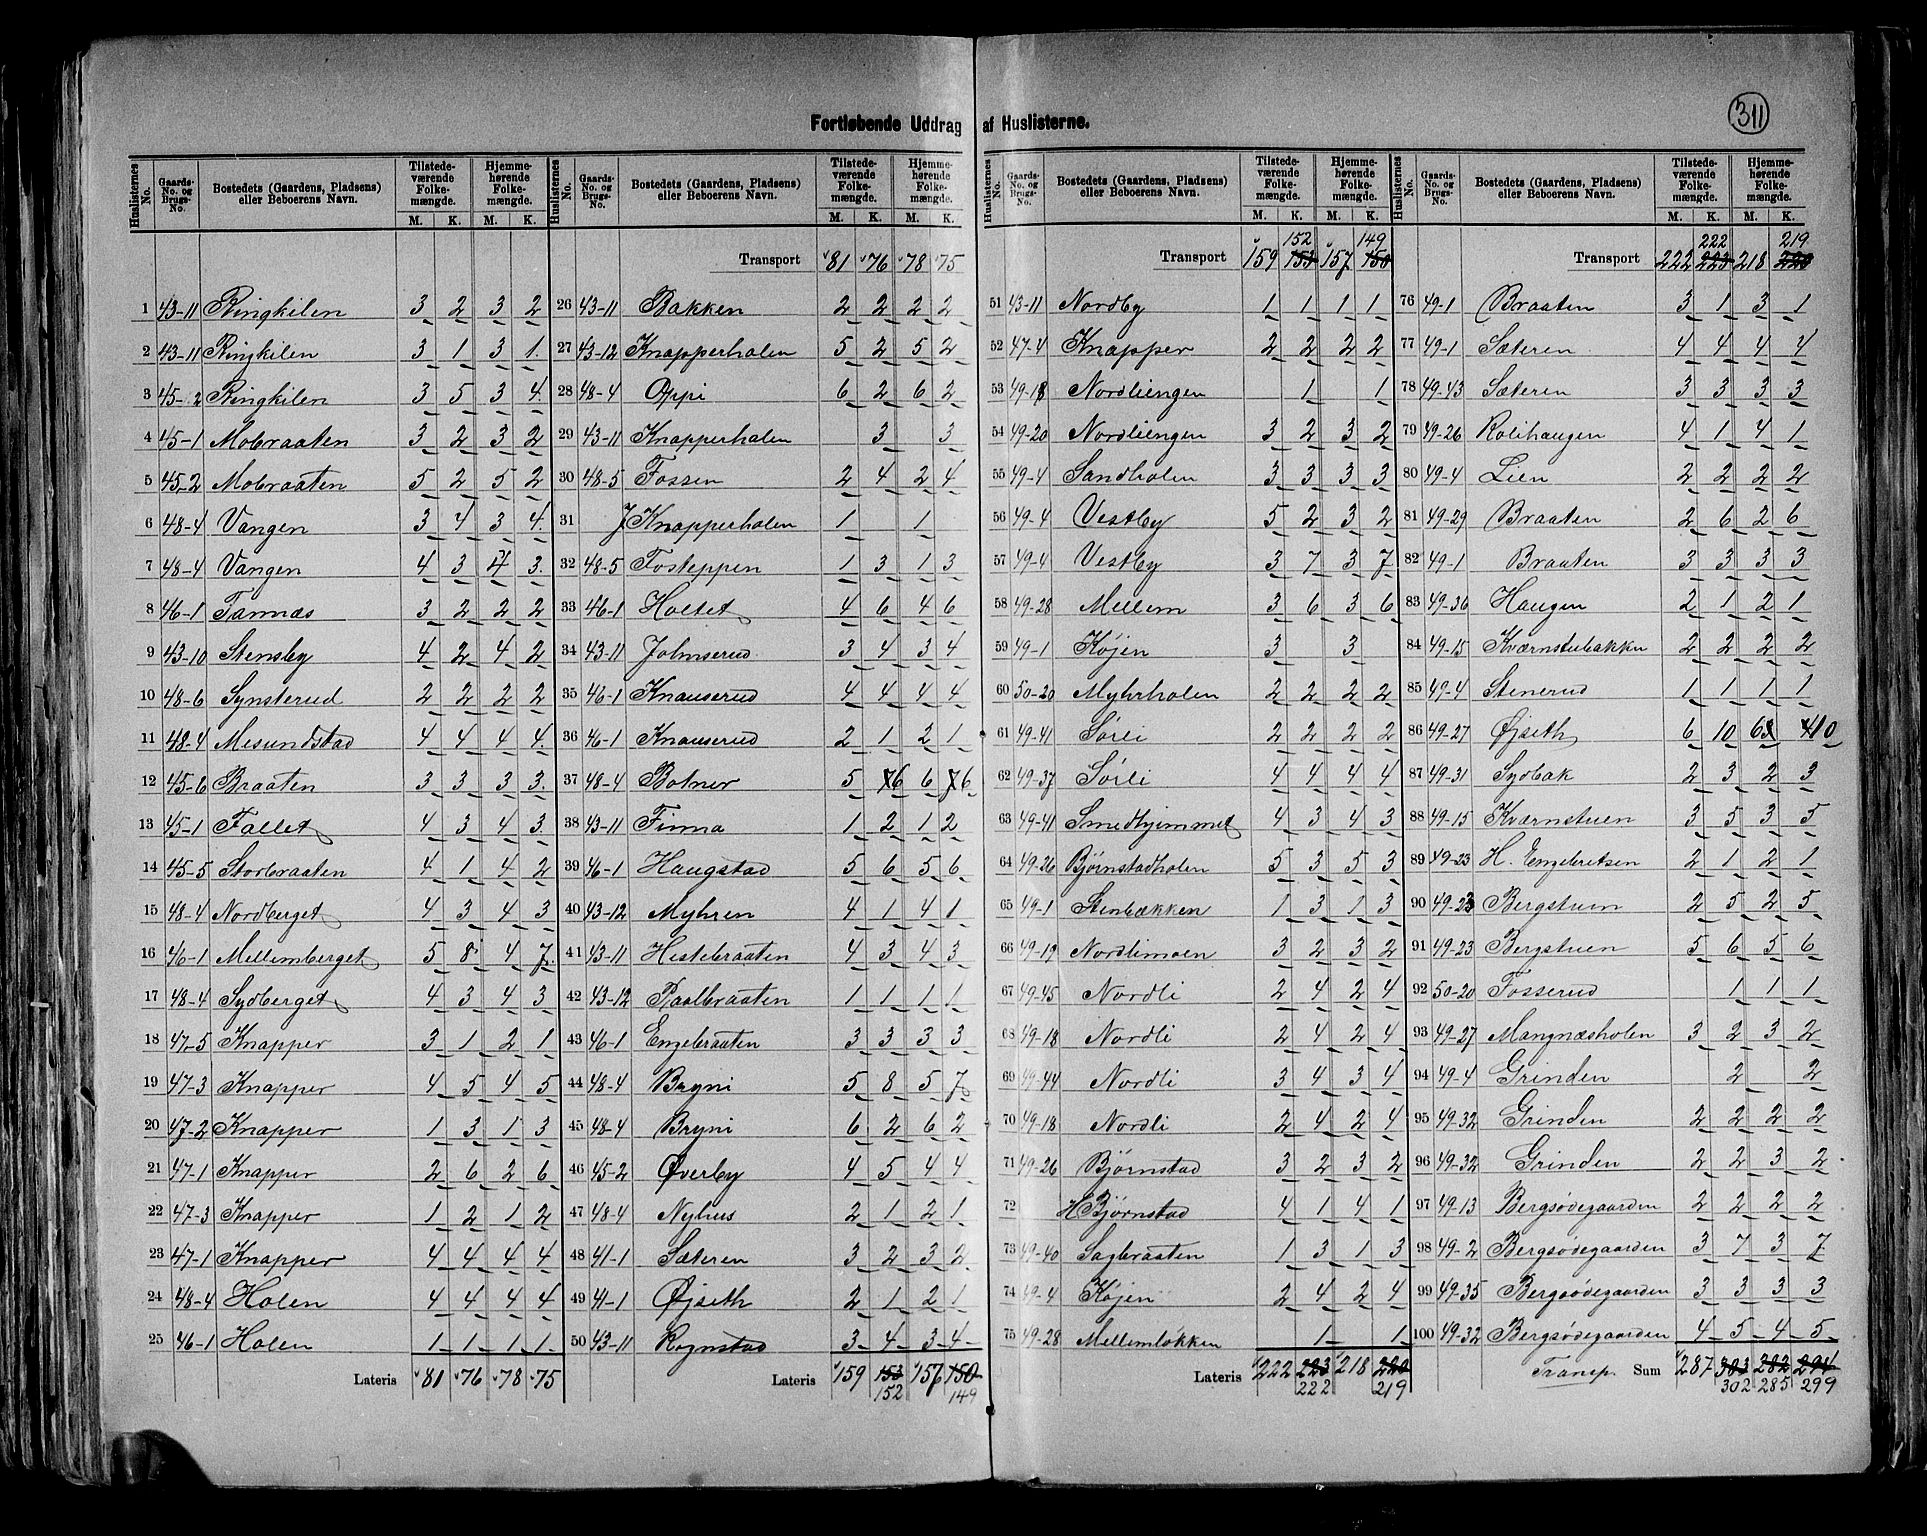 311
Fortløbende Uddrag af Huslisterne.
Huslisternes No. | Gaards-No. og Brugs-No. | Bostedets (Gaardens, Pladsens) eller Beboerens Navn. | Tilstedeværende Folkemængde. M. K. | Hjemmehørende Folkemængde. M. K.
1 43-11 Ringkilen 3 2 3 2
2 43-11 Ringkilen 3 1 3 1
3 45-2 Ringkilen 3 5 3 4
4 45-1 Mobraaten 3 2 3 2
5 45-2 Mobraaten 5 2 5 2
6 48-4 Vangen 3 4 3 4
7 48-4 Vangen 4 3 4 3
8 46-1 Tannæs 3 2 2 2
9 43-10 Stensby 4 2 4 2
10 48-6 Synsterud 2 2 2 2
11 48-4 Mesundstad 4 4 4 4
12 45-6 Braaten 3 3 3 3
13 45-1 Fallet 4 3 4 3
14 45-5 Storbraaten 4 1 4 2
15 48-4 Nordberget 4 3 4 3
16 46-1 Mellemberget 5 8 4 7
17 48-4 Sydberget 4 3 4 3
18 47-5 Knapper 3 1 2 1
19 47-3 Knapper 4 5 4 5
20 47-2 Knapper 1 3 1 3
21 47-1 Knapper 2 6 2 6
22 47-3 Knapper 1 2 1 2
23 47-1 Knapper 4 4 4 4
24 48-4 Holen 4 4 4 4
25 46-1 Holen 1 1 1 1
Lateris 81 76 78 75
Huslisternes No. | Gaards-No. og Brugs-No. | Bostedets (Gaardens, Pladsens) eller Beboerens Navn. | Tilstedeværende Folkemængde. M. K. | Hjemmehørende Folkemængde. M. K.
Transport 81 76 78 75
26 43-11 Bakken 2 2 2 2
27 43-12 Knapperholen 5 2 5 2
28 48-4 Oppi 6 2 6 2
29 43-11 Knapperholen 3 3
30 48-5 Fossen 2 4 2 4
31 J Knapperholen 1 1
32 48-5 Fosteppen 1 3 1 3
33 46-1 Holtet 4 6 4 6
34 43-11 Johnserud 3 4 3 4
35 46-1 Knauserud 4 4 4 4
36 46-1 Knauserud 2 1 2 1
37 48-4 Botner 5 7 6 6 7 6
38 43-11 Finna 1 2 1 2
39 46-1 Haugstad 5 6 5 6
40 43-12 Myhren 4 1 4 1
41 43-11 Hestebraaten 4 3 4 3
42 43-12 Raalbraaten 1 1 1 1
43 46-1 Engebraaten 3 3 3 3
44 48-4 Bryni 5 8 5 7
45 48-4 Bryni 6 2 6 2
46 45-2 Øverby 4 5 4 4
47 48-4 Nyhus 2 1 2 1
48 41-1 Sæteren 3 2 3 2
49 41-1 Øjseth 2 1 2 1
50 43-11 Rognstad 3 4 3 4
Lateris 159 153 157 150
152 149
Huslisternes No. | Gaards-No. og Brugs-No. | Bostedets (Gaardens, Pladsens) eller Beboerens Navn. | Tilstedeværende Folkemængde. M. K. | Hjemmehørende Folkemængde. M. K.
152 149
Transport 159 153 157 150
51 43-11 Nordby 1 1 1 1
52 47-4 Knapper 2 2 2 2
53 49-18 Nordliengen 1 1
54 49-20 Nordliengen 3 2 3 2
55 49-4 Sandholen 3 3 3 3
56 49-4 Vestby 5 2 3 2
57 49-4 Vestby 3 7 3 7
58 49-28 Mellem 3 6 3 6
59 49-1 Køjen 3 3
60 50-20 Myhrholen 2 2 2 2
61 49-41 Sørli 2 2 2 2
62 49-37 Sørli 4 4 4 4
63 49-41 Smedhjemmet 4 3 4 3
64 49-26 Bjørnstadholen 5 3 5 3
65 49-1 Stenbækken 1 3 1 3
66 49-19 Nordlimoen 3 2 3 2
67 49-45 Nordli 2 4 2 4
68 49-18 Nordli 2 4 2 4
69 49-44 Nordli 3 4 3 4
70 49-18 Nordli 2 4 2 4
71 49-26 Bjørnstad 3 2 3 2
72 H Bjørnstad 4 1 4 1
73 49-40 Sagbraaten 1 3 1 3
74 49-4 Køjen 2 4 2 4
75 49-28 Mellemløkken 1 1
Lateris 222 223 218 220
222 219
Huslisternes No. | Gaards-No. og Brugs-No. | Bostedets (Gaardens, Pladsens) eller Beboerens Navn. | Tilstedeværende Folkemængde. M. K. | Hjemmehørende Folkemængde. M. K.
222 219
Transport 222 223 218 220
76 49-1 Braaten 3 1 3 1
77 49-1 Sæteren 4 4 4 4
78 49-43 Sæteren 3 3 3 3
79 49-26 Rolihaugen 4 1 4 1
80 49-4 Lien 2 2 2 2
81 49-29 Braaten 2 6 2 6
82 49-1 Braaten 3 3 3 3
83 49-36 Haugen 2 1 2 1
84 49-15 Kværnstubakken 2 2 2 2
85 49-4 Stenerud 1 1 1 1
86 49-27 Øjseth 6 10 6 3 4 10
87 49-31 Sydbak 2 3 2 3
88 49-15 Kværnstuen 3 5 3 5
89 49-23 H. Engebretsen 2 1 2 1
90 49-23 Bergstuen 2 5 2 5
91 49-23 Bergstuen 5 6 5 6
92 50-20 Fosserud 1 1 1
93 49-27 Mangnæsholen 3 2 3 2
94 49-4 Grinden 2 2
95 49-32 Grinden 2 2 2 2
96 49-32 Grinden 2 2 3 2
97 49-13 Bergsødegaarden 2 2 2 2
98 49-2 Bergsødegaarden 3 7 3 7
99 49-35 Bergsødegaarden 3 3 3 3
100 49-32 Bergsødegaarden 4 5 4 5
Transp. Sum 287 303 282 294
302 285 299